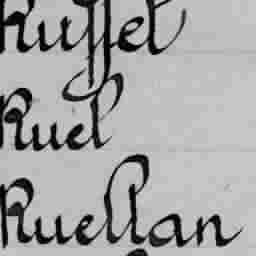 Ruffet
Ruel
Ruellan